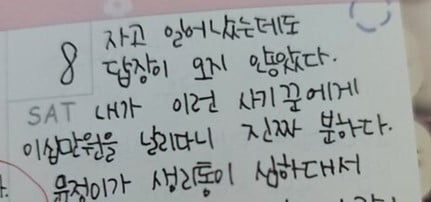 자고 일어났는데도
8 답장이 오지 않았다.
SAT 내가 이런 사기꾼에게
이십만원을 날리다니 진짜 분하다.
유정이가 생리통이 심하대서